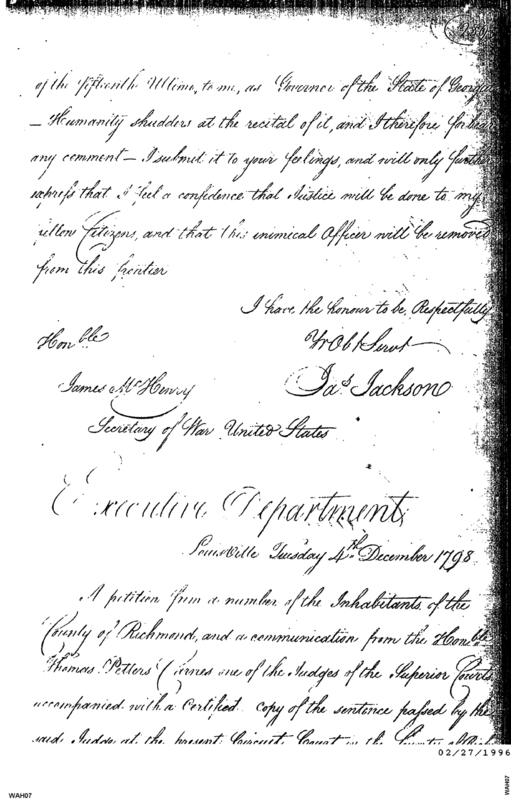 of the fifteenth Ultimo, to me, as Governor of the State of Georgia
— Humanity shudders at the recital of it, and I therefore forbear
any comment — I submit it to your feelings, and will only further
express that I feel a confidence that Justice will be done to my
fellow Citizens, and that this inimical Officer will be removed
from this frontier
I have the honour to be Respectfully
Honble
Yr Obt Servt
James McHenry
Jas Jackson
Secretary of War United States
Executive Department,
Louisville Tuesday 4th December 1798
A petition from a number of the Inhabitants of the
County of Richmond, and a communication from the Honble
Thomas Petters Carnes one of the Judges of the Superior Courts
accompanied with a Certified copy of the sentence passed by the
said Judge at the present Circuit Court in the County
02/27/1996
WAH07
WAH07